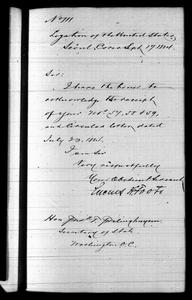 No 111
Legation of the United States
Séoul Corea Sept 17 1884.
Sir:
I have the honor to
acknowledge the receipt
of your Nos 57, 58 & 59,
and Circular letter, dated
July 1884.
I am Sir
Very respectfully
Your Obedient Servant
Lucius H. Foote
Hon Fred'k T. Frelinghuysen
Secretary of State
Washington D.C.